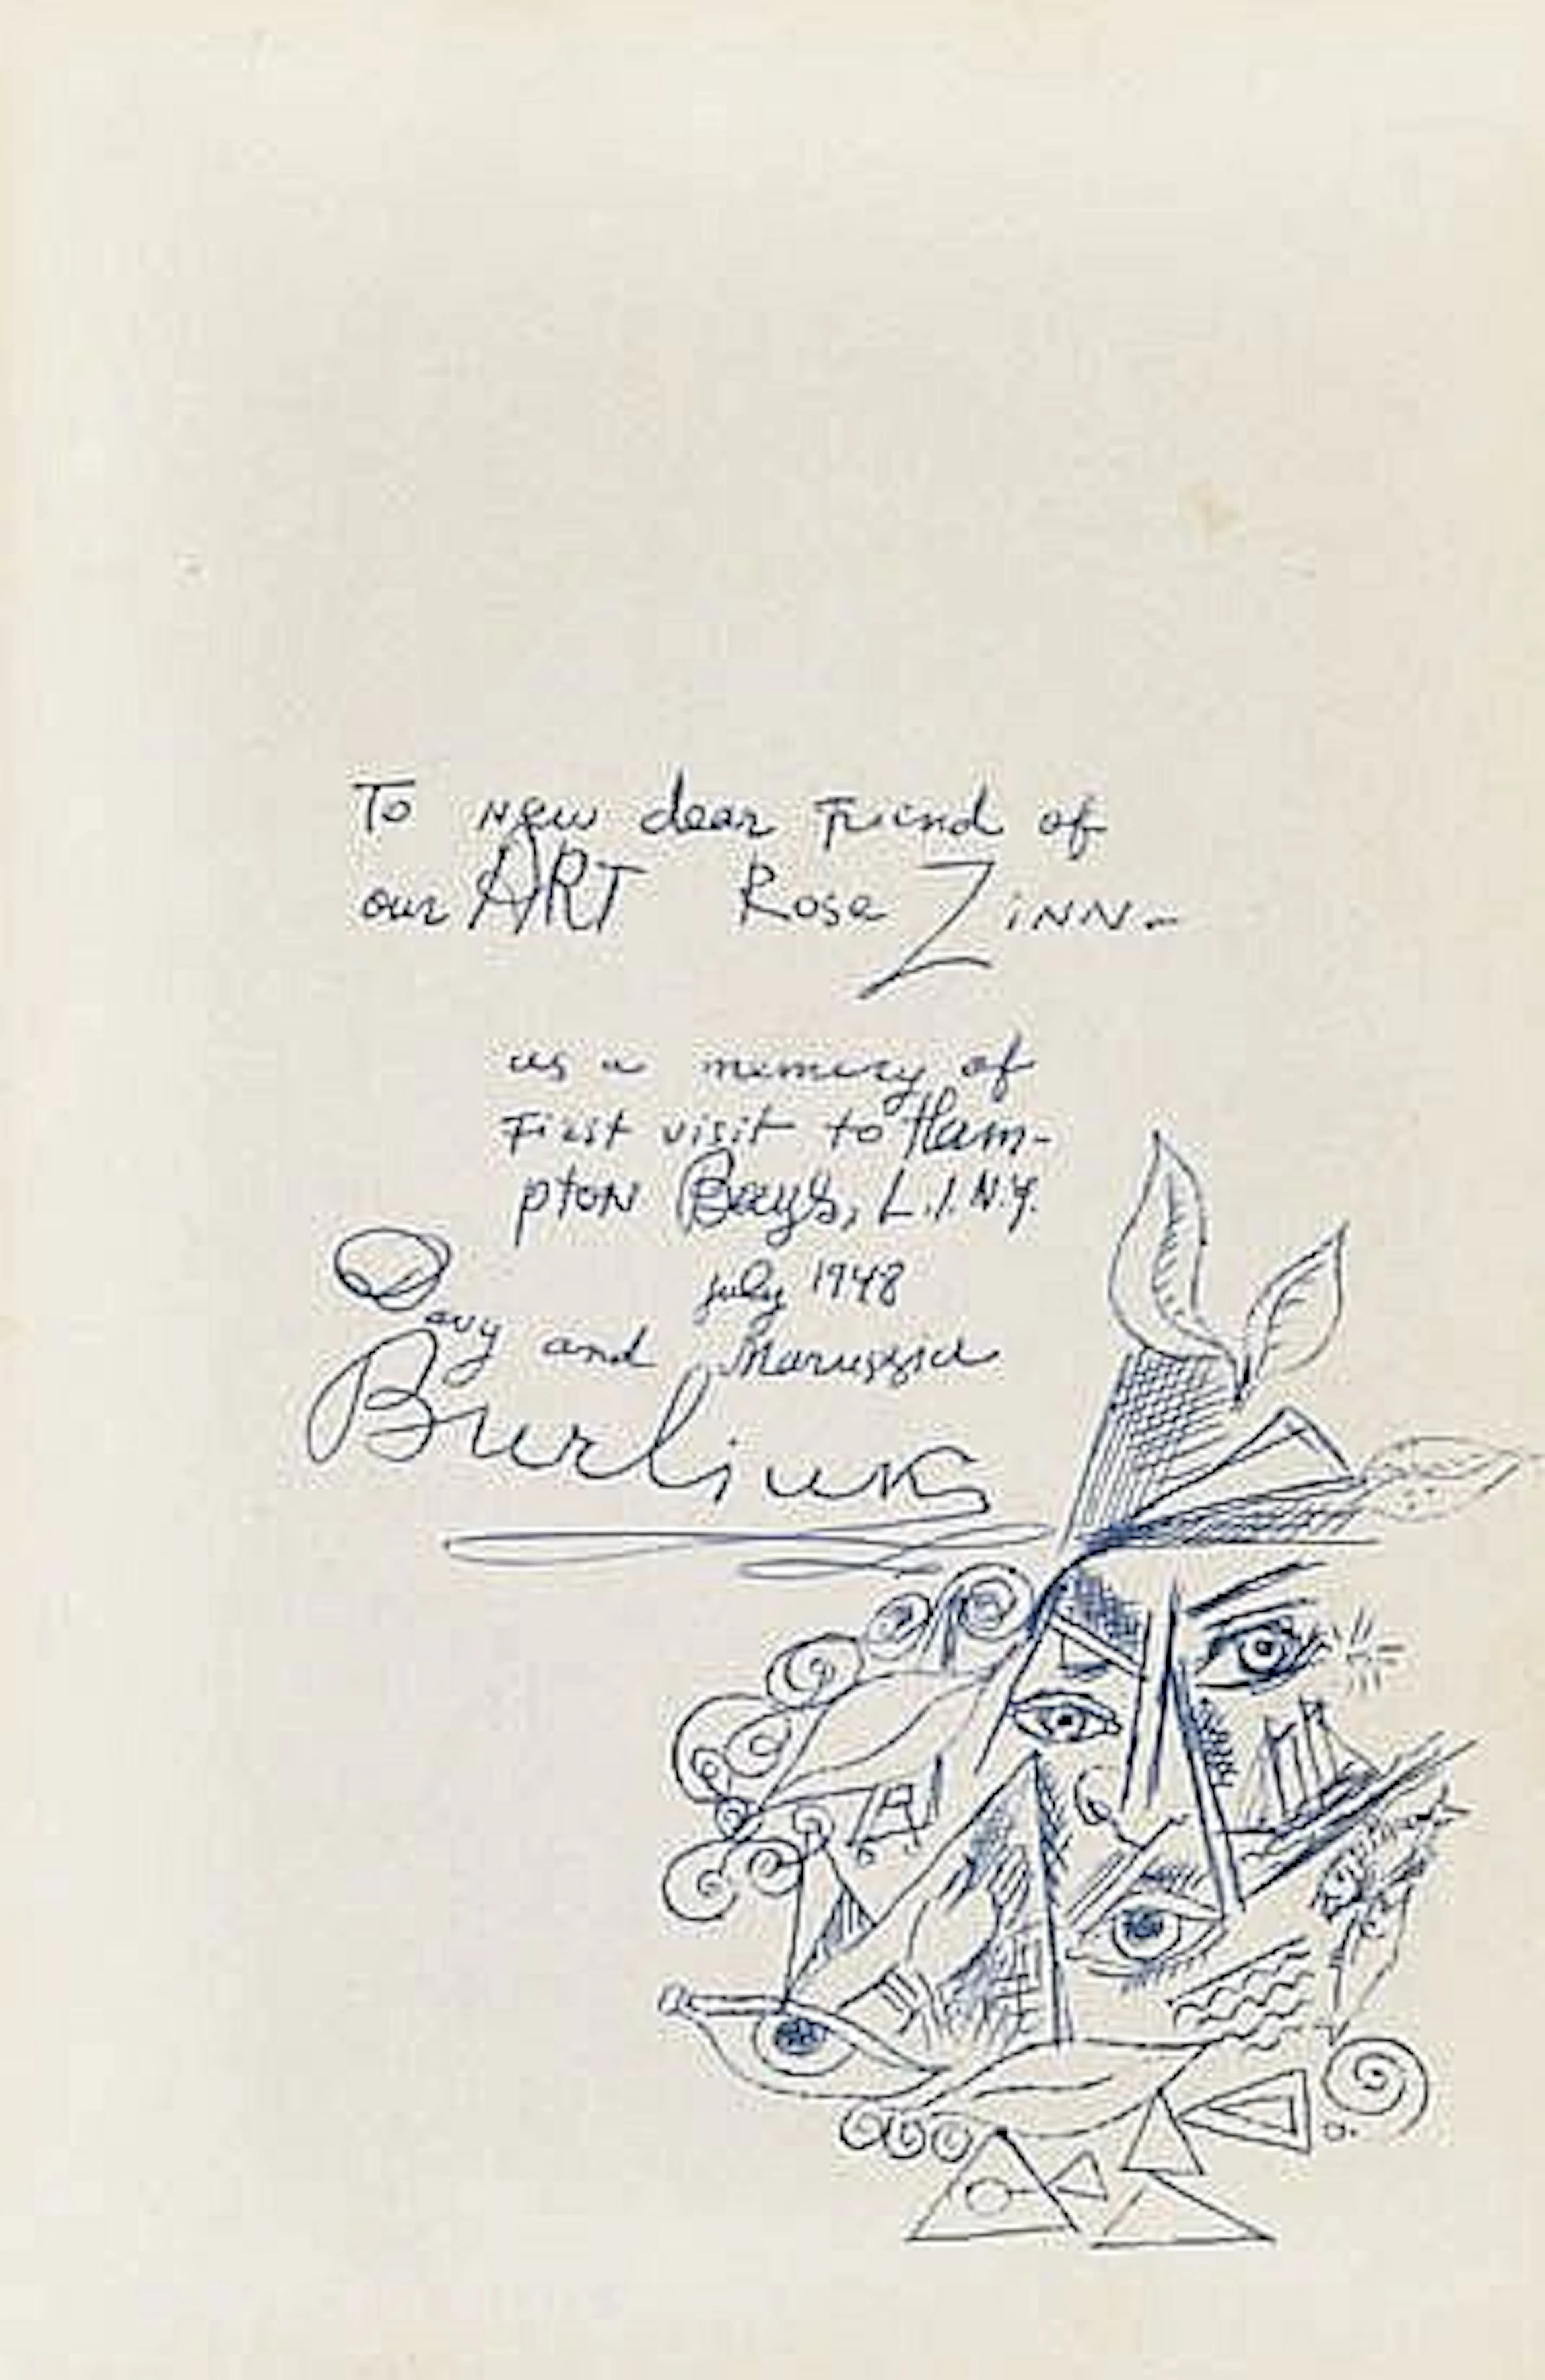 To New dear Friend of
our ART Rose ZiNN-
as a memory of
First visit to Ham-
ptoN Bays, L.I. N.Y.
july 1948
Davy and Marussia
Burliuks